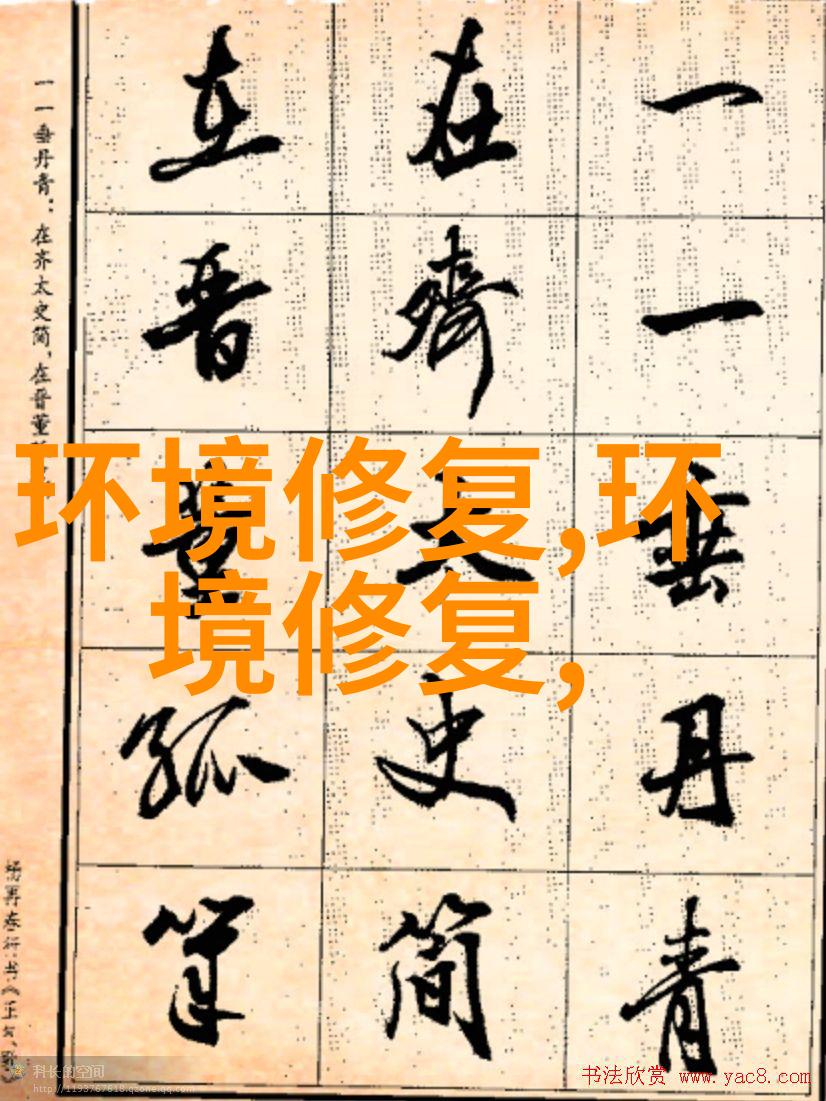 一一垂丹青
在齊太史简
在晋董狐筆
一一垂丹青:在齐太史简,在晋董
环境修复,环
境修复,
杨再春行书《正气歌》
科长的空间
http://1193767618.qzone.qq.com
书法欣赏 www.yac8.com